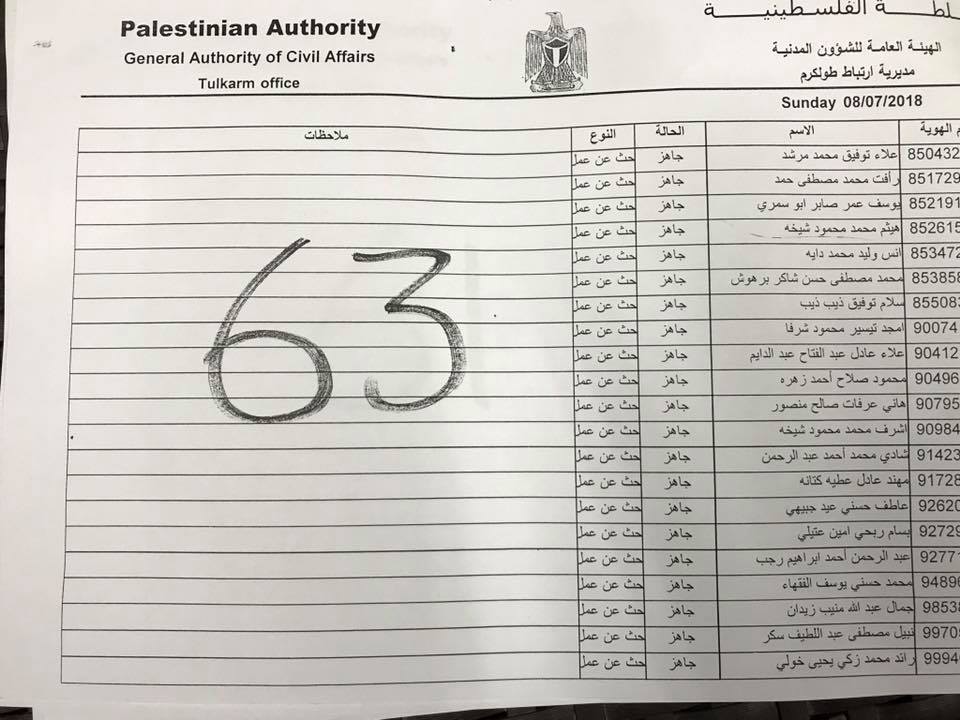 Palestinian Authority
General Authority of Civil Affairs
Tulkarm office
الفلسطينية
الهيئة العامة للشؤون المدنية
مديرية ارتباط طولكرم
Sunday 08/07/2018
الهوية الاسم الحالة النوع ملاحظات
850432 علاء توفيق محمد مرشد جاهز حث عن عمل
851729 رأفت محمد مصطفى حمد جاهز حث عن عمل
852191 يوسف عمر صابر ابو سمري جاهز حث عن عمل
852615 هيثم محمد محمود شيخه جاهز حث عن عمل
853472 انس وليد محمد دايه جاهز حث عن عمل
853858 محمد مصطفى حسن شاكر برهوش جاهز حث عن عمل
855083 سلام توفيق ذيب ذيب جاهز حث عن عمل
90074 امجد تيسير محمود شرفا جاهز حث عن عمل
90412 علاء عادل عبد الفتاح عبد الدايم جاهز حث عن عمل
90496 محمود صلاح أحمد زهره جاهز حث عن عمل
90795 هاني عرفات صالح منصور جاهز حث عن عمل
90984 اشرف محمد محمود شيخه جاهز حث عن عمل
91423 شادي محمد أحمد عبد الرحمن جاهز حث عن عمل
91728 مهند عادل عطيه كتانه جاهز حث عن عمل
92620 عاطف حسني عيد جبيهي جاهز حث عن عمل
92729 بسام ربحي امين عتيلي جاهز حث عن عمل
92771 عبد الرحمن أحمد ابراهيم رجب جاهز حث عن عمل
94896 محمد حسني يوسف الفقهاء جاهز حث عن عمل
98538 جمال عبد الله منيب زيدان جاهز حث عن عمل
99705 نبيل مصطفى عبد اللطيف سكر جاهز حث عن عمل
9994 رائد محمد زكي يحيى خولي جاهز حث عن عمل
63